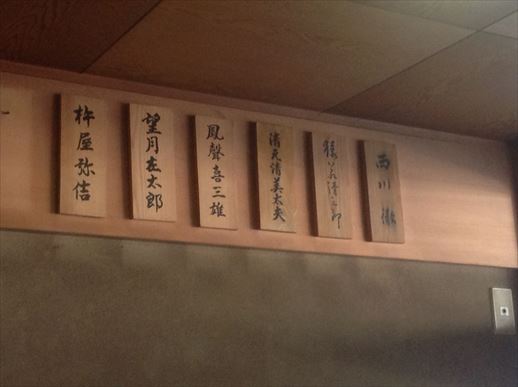 西川
猿若清三郎
清元清美太夫
鳳聲喜三雄
望月左太郎
杵屋弥佶